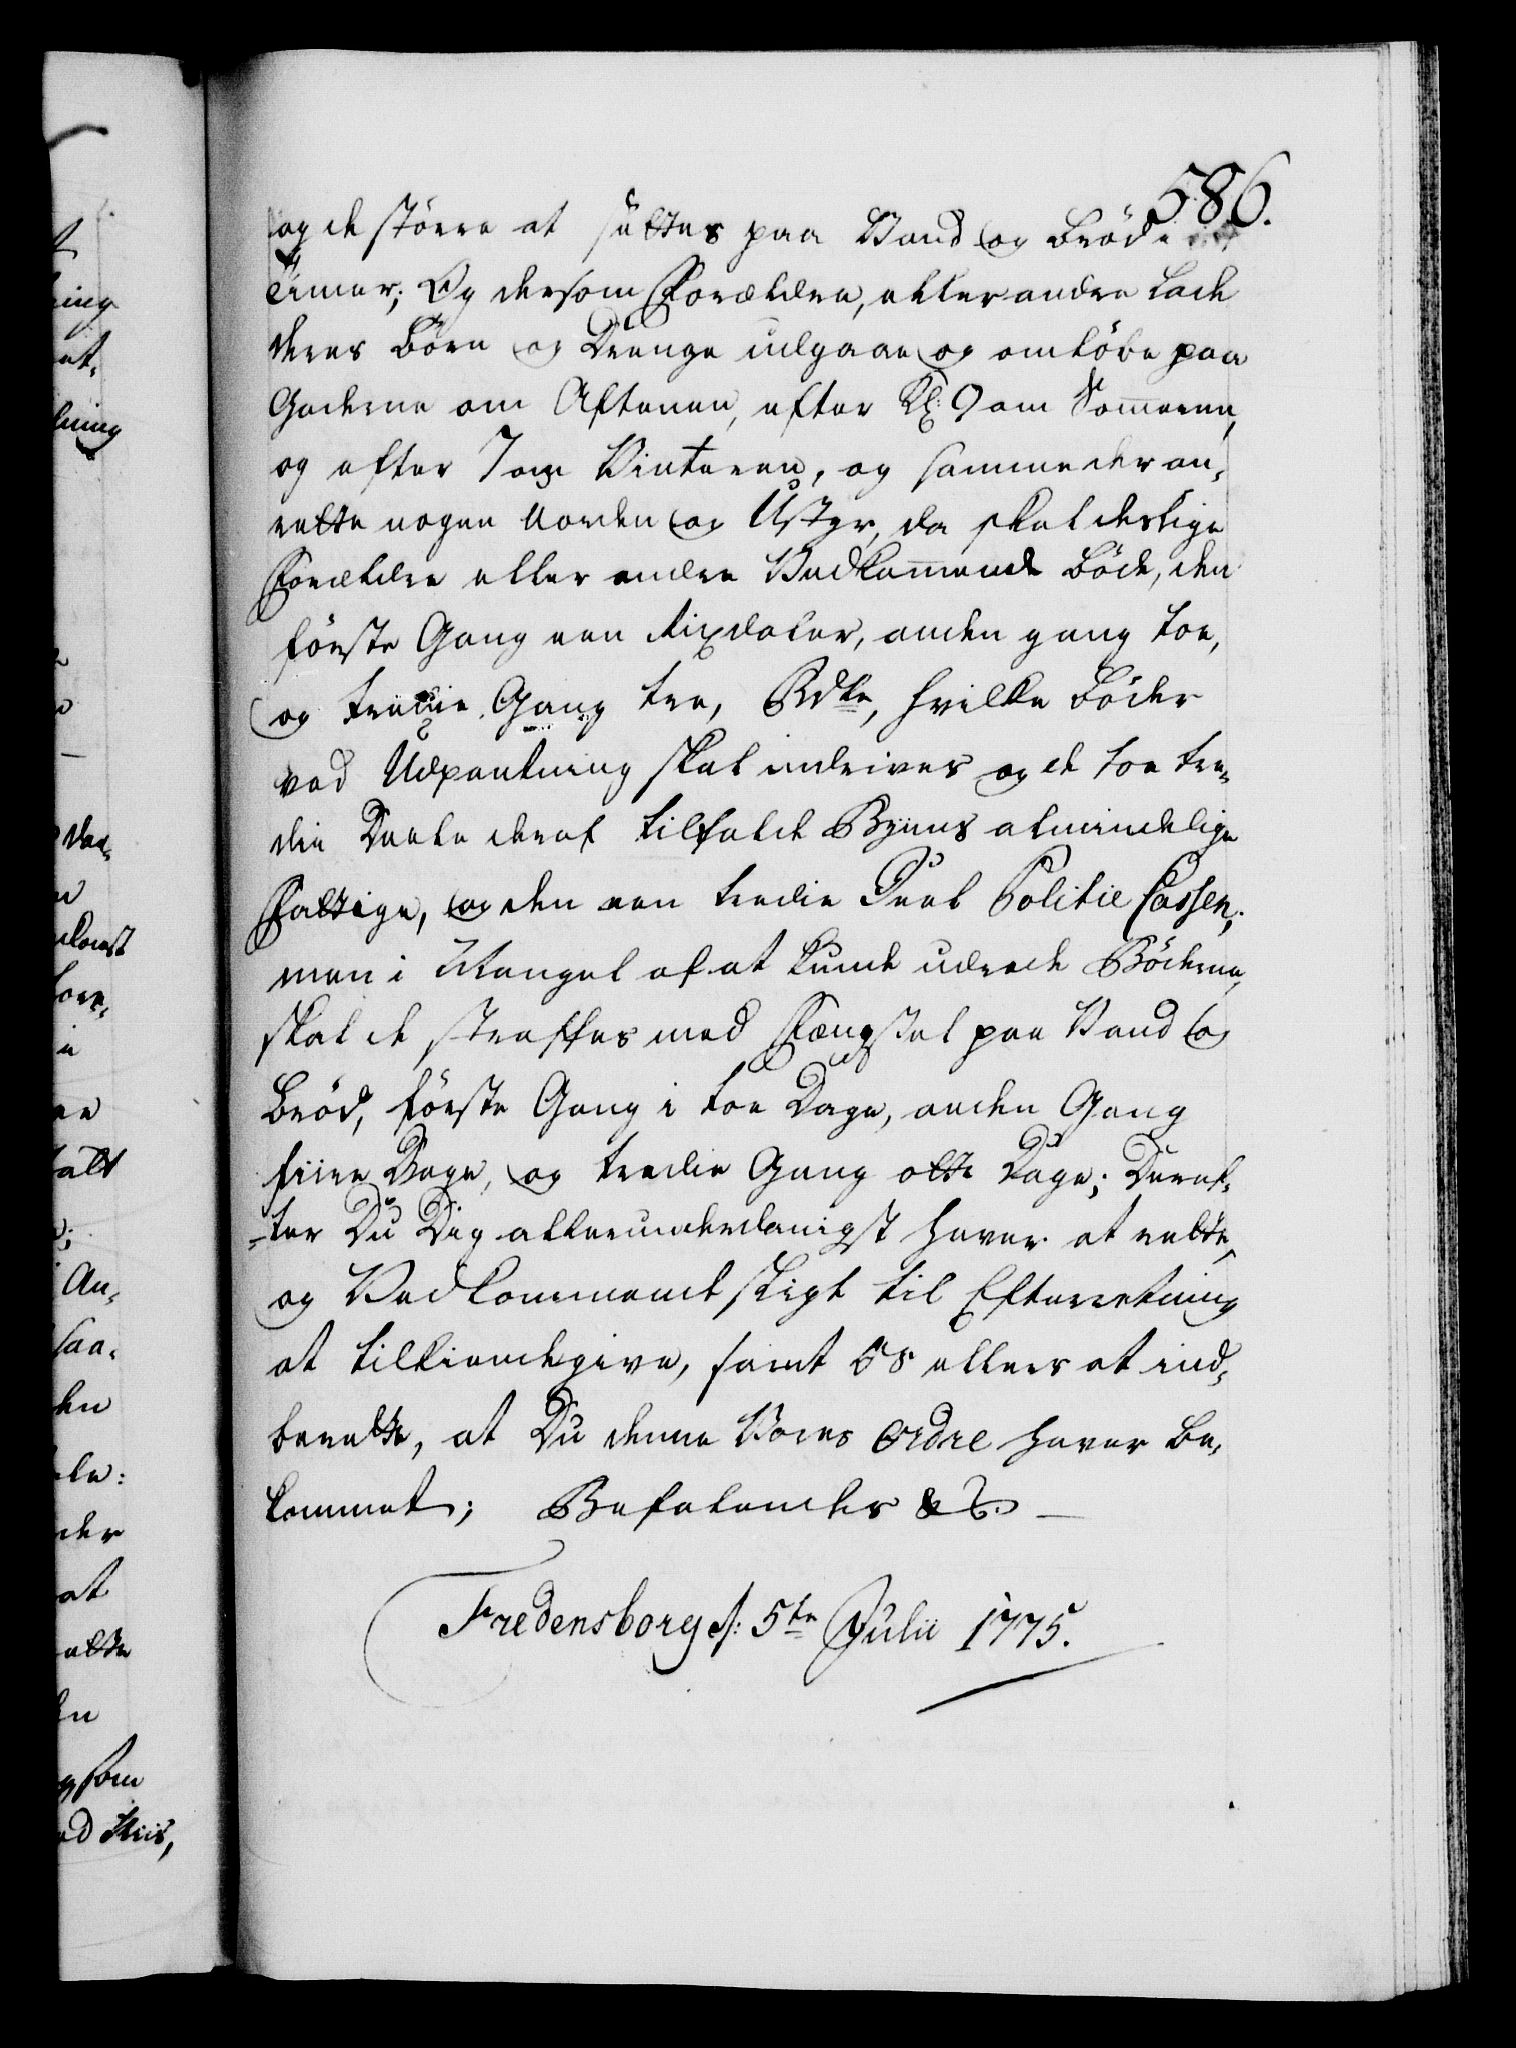 586.
og de större at sættes paa Vand og Bröd i
Timer; Og dersom Forældre, eller andre lade
deres Börn og Drenge udgaae og omlöbe paa
Gaderne om Aftenen, efter Kl: 9 om Sommeren,
og efter 7 om Vinteren, og samme der an-
rette nogen Uorden og Ustyr, da skal deslige
Forældre eller andre Vedkommende böde, den
förste Gang een Rixdaler, anden gang toe,
og tredie Gang tre, Rdlr, hvilke Böder
ved Udpantning skal inddrives og de toe tre-
die Deele deraf tilfalde Byens almindelige
Fattige, og den een tredie Deel Politie Cassen;
men i Mangel af at kunde udrede Böderne,
skal de straffes med Fængsel paa Vand og
Bröd, förste Gang i toe Dage, anden Gang
fiire Dage, og tredie Gang otte Dage; Deref-
-ter Du Dig allerunderdanigst haver at rette,
og Vedkommende sligt til Efterretning
at tilkiendegive, samt Os ellers at ind-
berette, at Du denne Vores Ordre haver be-
kommet; Befalendes &c. —
Fredensborg d: 5te Julii 1775.
t
ning
et.
lning
daa-
n
nkomst
fore-
i
er
talt
An-
saa-
den
ele:
der
at
ette
en
g som
ed Riis,